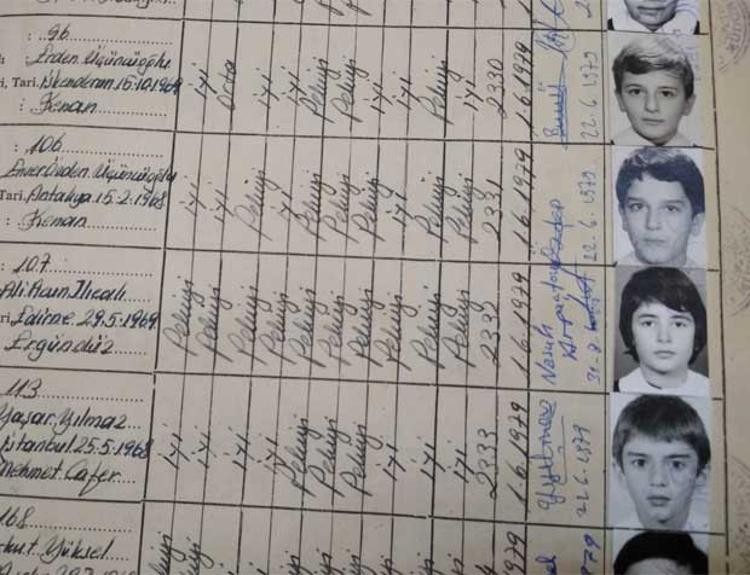 : 96
: Erden Üçüncüoğlu
i, Tari. İskenderun 15.10.1969
: Kenan
iyi
Orta
iyi
iyi
Pekiyi
Pekiyi
iyi
iyi
Pekiyi
iyi
2330
1.6.1979
22.6.1979
: 106
Enver Erden Üçüncüoğlu
Tari. Antalya 15.2.1968
: Kenan
iyi
iyi
Pekiyi
iyi
Pekiyi
Pekiyi
Pekiyi
iyi
Pekiyi
Pekiyi
2331
1.6.1979
22.6.1979
: 107
Ali Acun Ilıcalı
ri. Edirne 29.5.1969
Ergündüz
Pekiyi
Pekiyi
Pekiyi
Pekiyi
Pekiyi
Pekiyi
Pekiyi
Pekiyi
Pekiyi
Pekiyi
2332
1.6.1979
Nasuh
113
Yaşar Yılmaz
İstanbul 25.5.1968
Mehmet Cafer
iyi
iyi
iyi
iyi
Pekiyi
Pekiyi
Pekiyi
iyi
iyi
iyi
2333
1.6.1979
22.6.1979
168
Yüksel
Pekiyi
Pekiyi
979